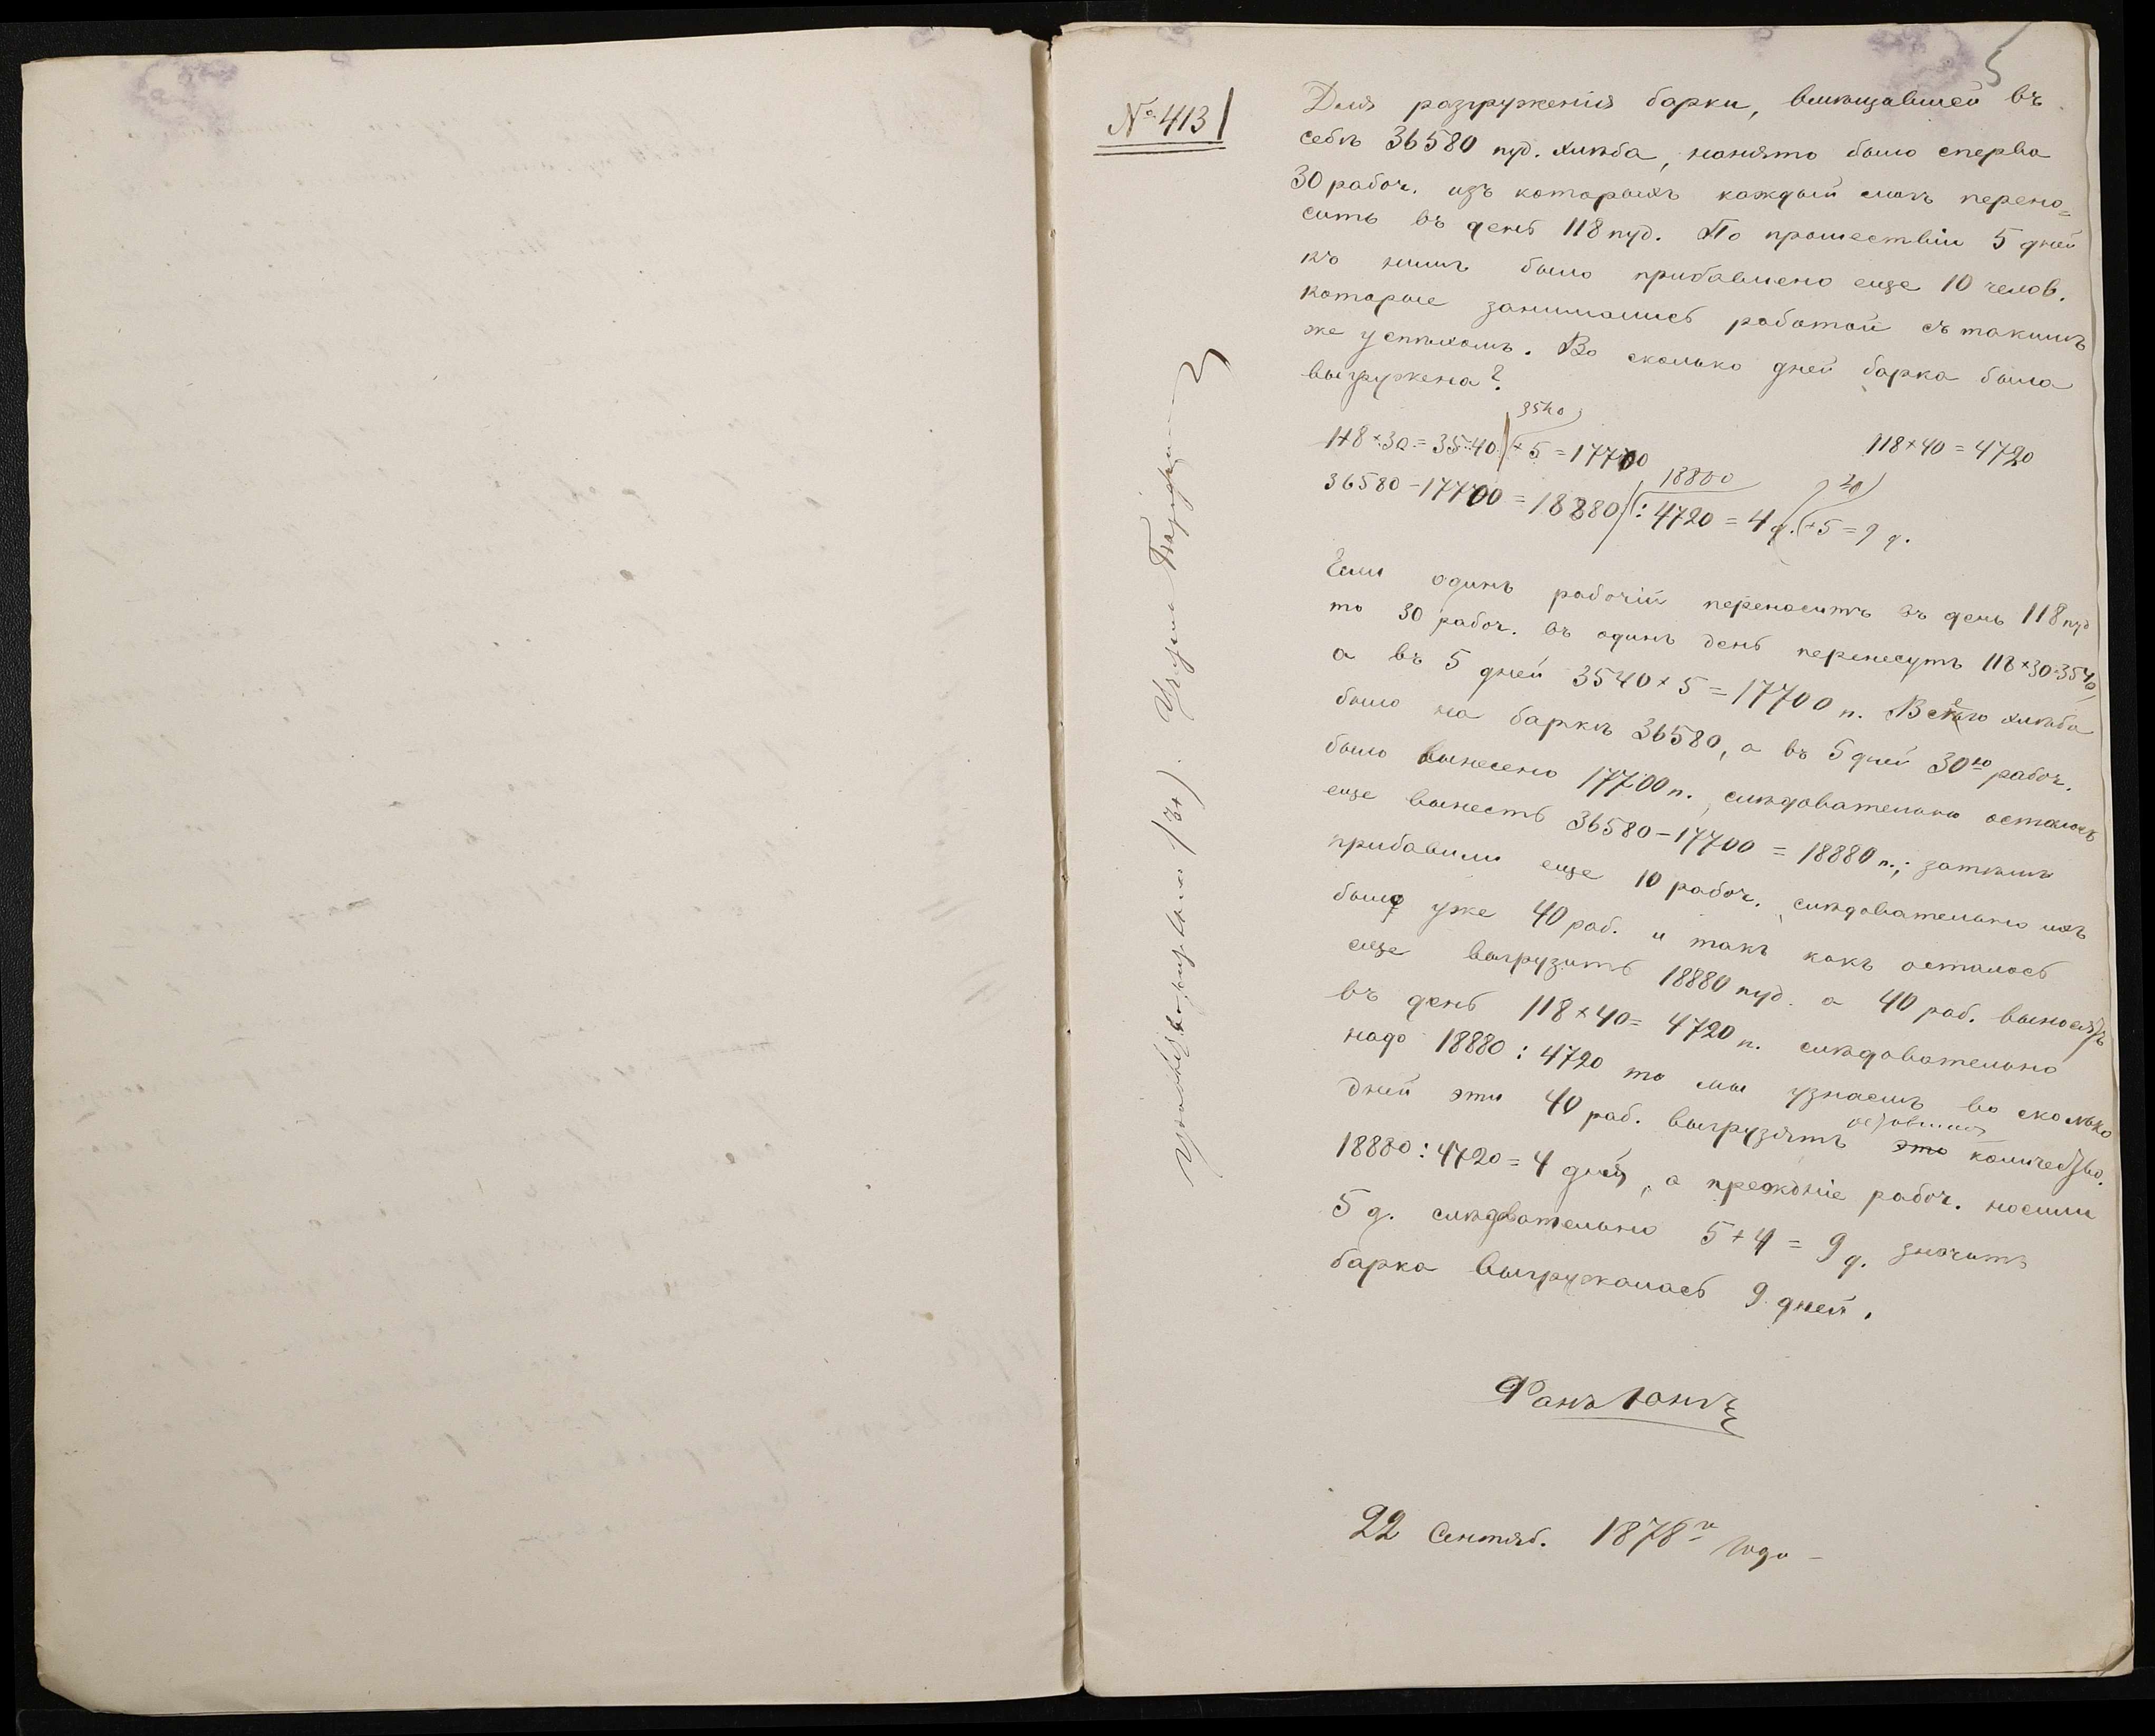 5
№ 413
Для разгруженія барки, вмѣщавшей въ
себѣ 36580 пуд. хлѣба, нанято было сперва
30 рабоч. изъ которыхъ каждый могъ перено=
сить въ день 118 пуд. По прошествіи 5 дней
къ нимъ было прибавлено еще 10 челов.
которые занимались работой съ такимъ
же успѣхомъ. Во сколько дней барка была
выгружена?
3540
118 × 30 = 3540 × 5 = 17700
118 × 40 = 4720
18880
36580 – 17700 = 18880 : 4720 = 4 д. + 5 = 9 д.
Если одинъ рабочій переноситъ въ день 118 пуд
то 30 рабоч. въ одинъ день перенесутъ 118 × 30 = 3540,
а въ 5 дней 3540 × 5 = 17700 п. Всего хлѣба
было на баркѣ 36580, а въ 5 дней 30ю рабоч.
было вынесено 17700 п. слѣдовательно осталось
еще вынесть 36580 – 17700 = 18880 п.; затѣмъ
прибавили еще 10 рабоч. слѣдовательно ихъ
было уже 40 раб. и такъ какъ осталось
еще выгрузить 18880 пуд. а 40 раб. выносятъ
въ день 118 × 40 = 4720 п. слѣдовательно
надо 18880 : 4720 то мы узнаемъ во сколько
дней эти 40 раб. выгрузятъ это оставшееся количество.
18880 : 4720 = 4 дня, а прежніе рабоч. носили
5 д. слѣдовательно 5 + 4 = 9 д. значитъ
барка выгружалась 9 дней.
Фанъ Юнгъ
22 Сентяб. 1878го года
Удовлетворительно (3+).